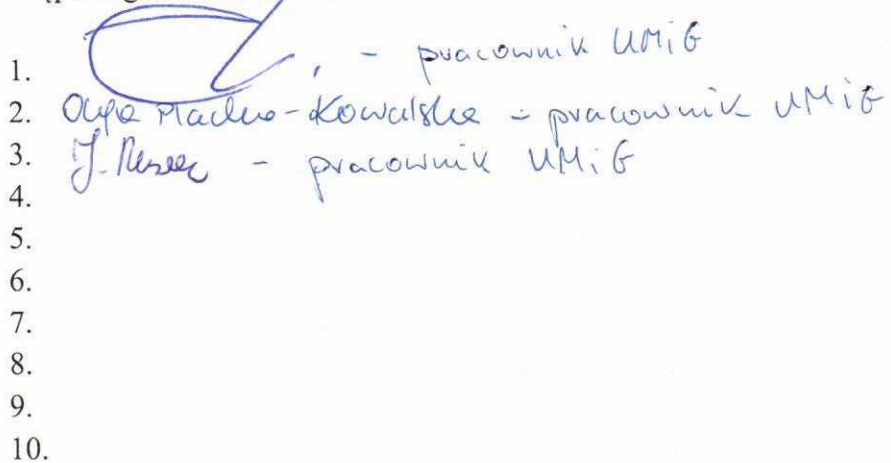 1. - pracownik UMiG
2. Olga Macho-Kowalska - pracownik UMiG
3. J. - pracownik UMiG
4.
5.
6.
7.
8.
9.
10.